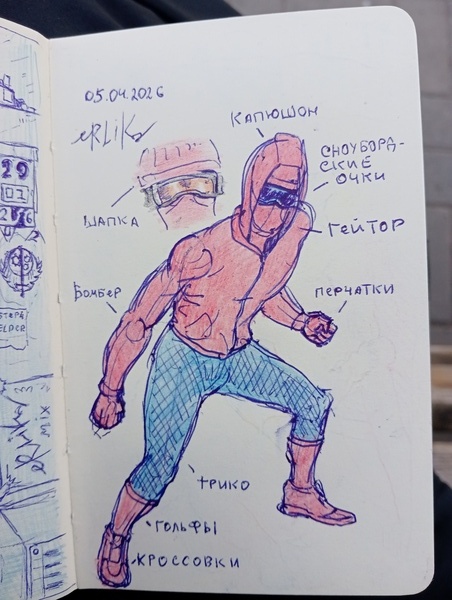 05.04.2026
eRLiK
КАПЮШОН
СНОУБОРД-
СКИЕ
ОЧКИ
ШАПКА
ГЕЙТОР
Бомбер
ПЕРЧАТКИ
ТРИКО
ГОЛЬФЫ
КРОССОВКИ
29
01